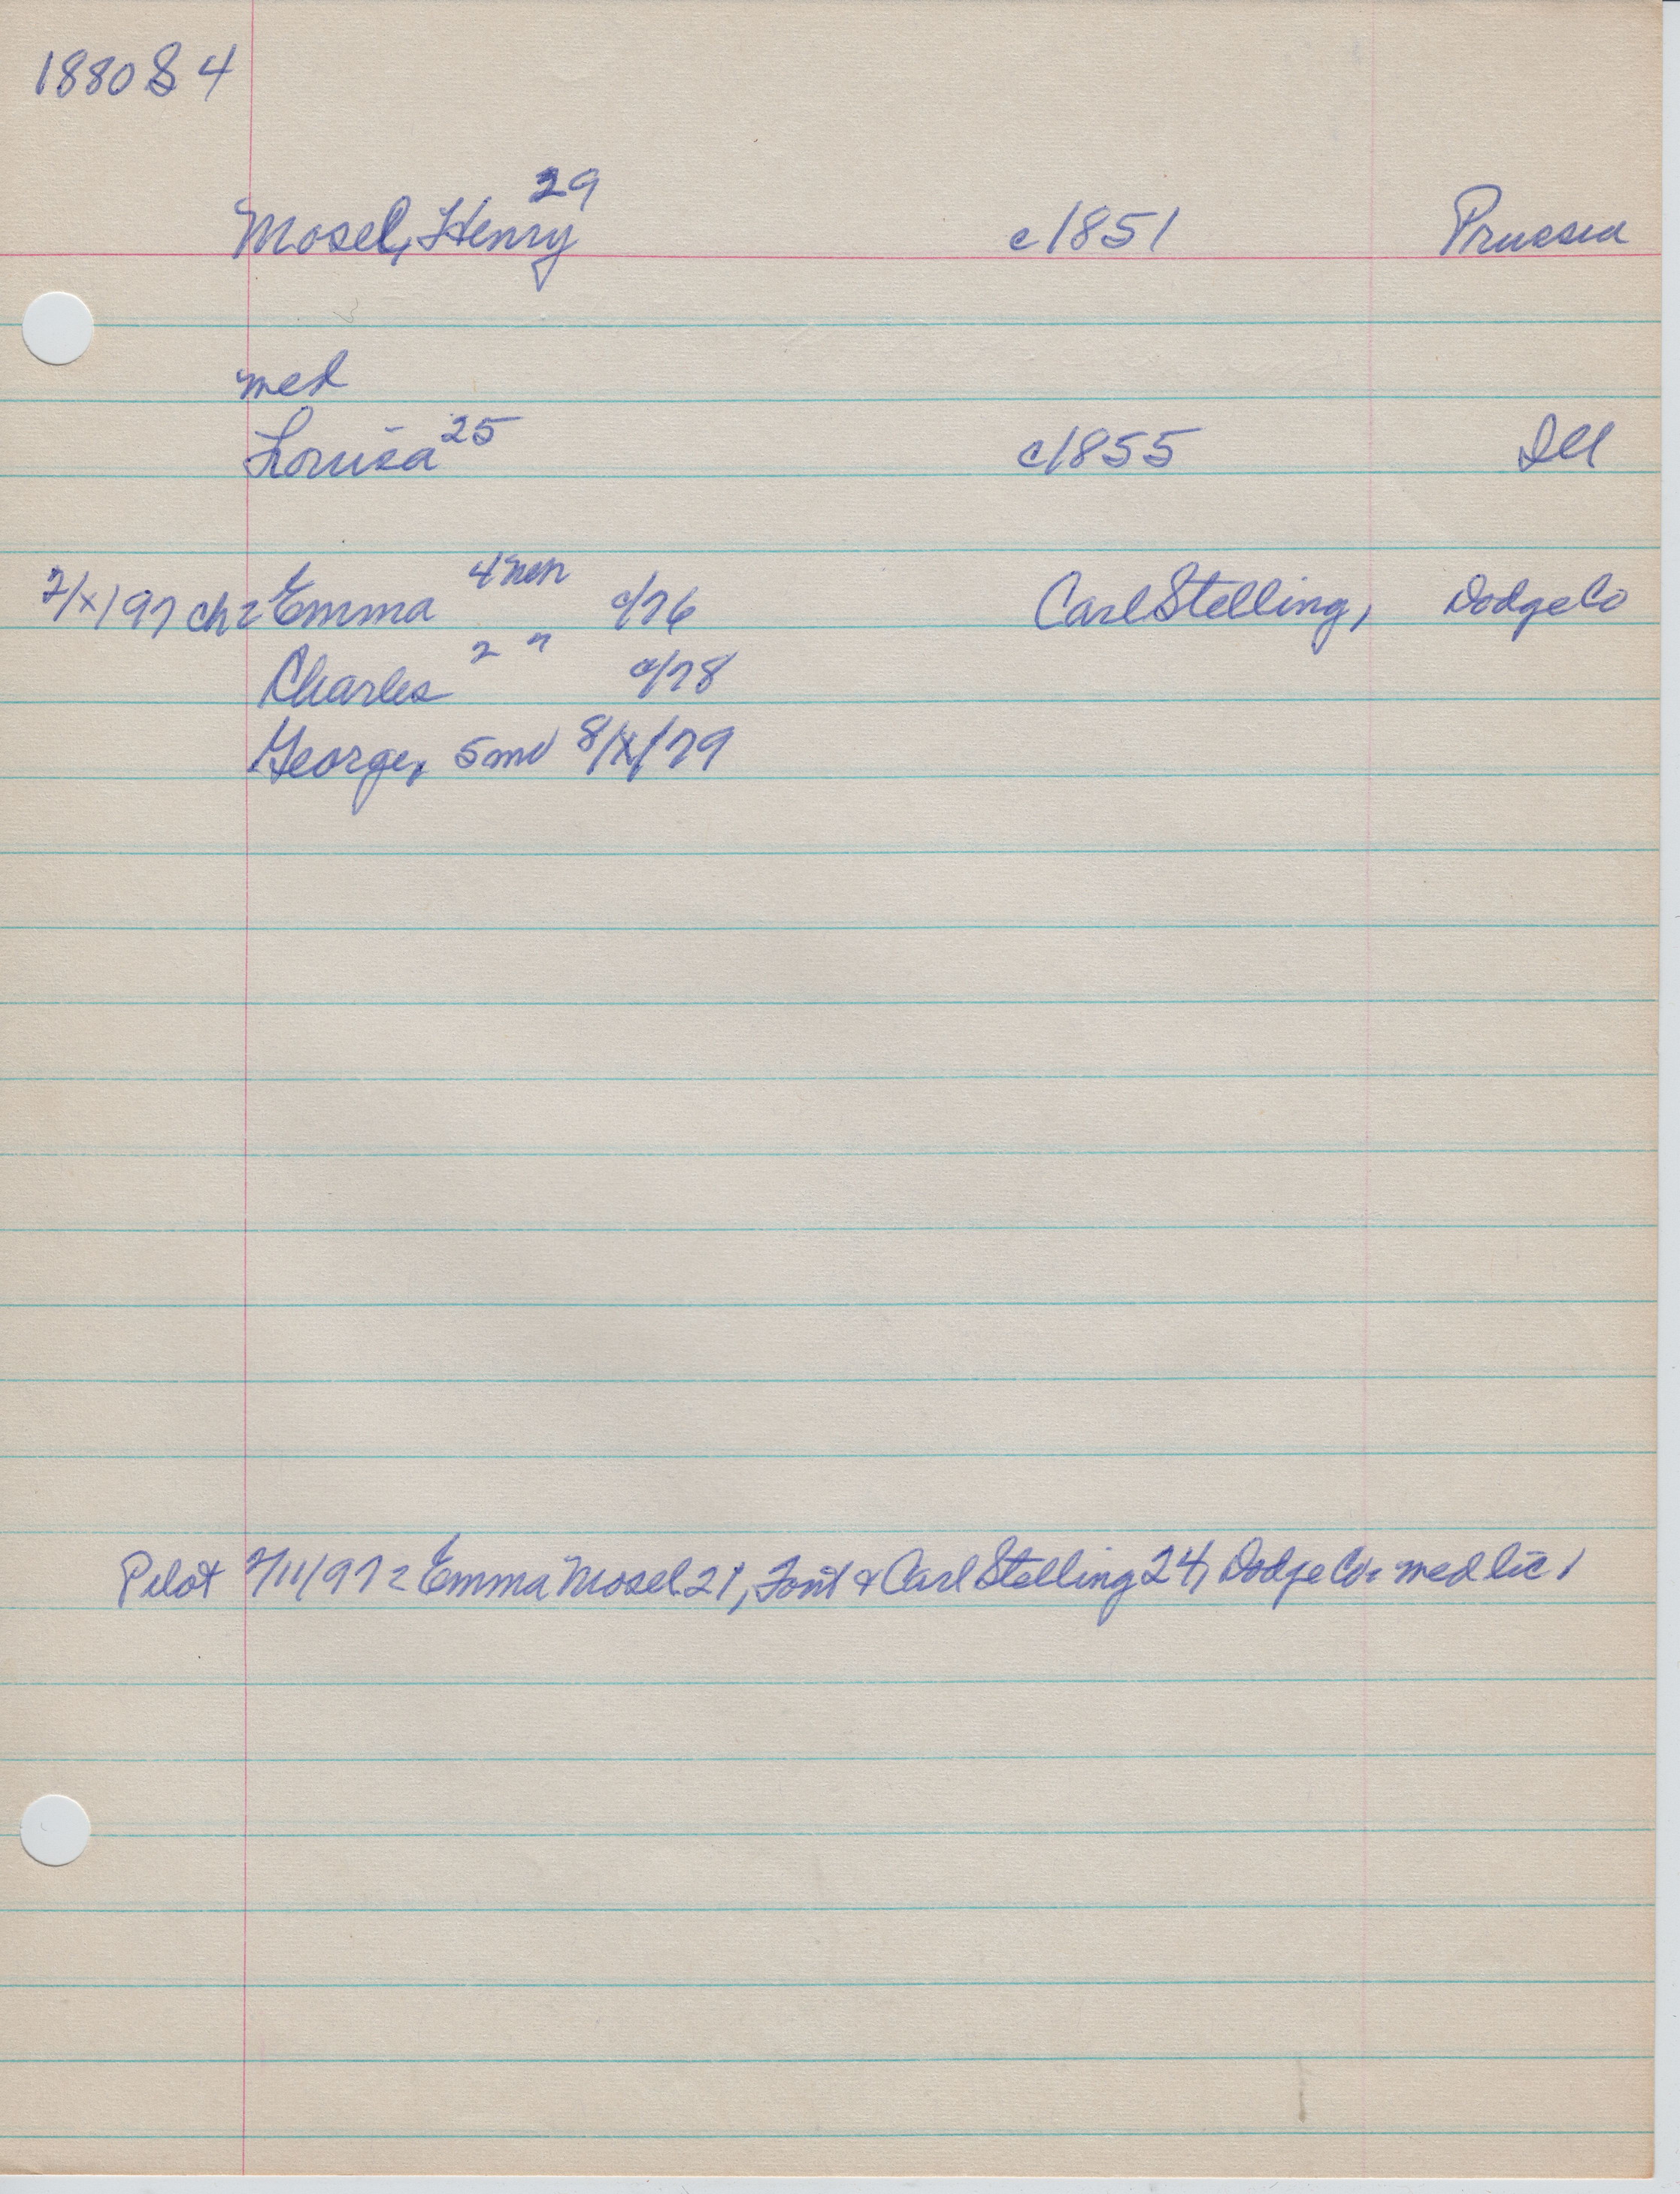 1880 S 4
Mosel, Henry 29 c1851 Prussia
med
Louisa 25 c1855 Ill
2/x/97 ch: Emma 4 Neb c/76 Carl Stelling, Dodge Co
Charles 2 " c/78
George, 5mo 8/x/79
Pilot 2/11/97: Emma Mosel 21, Font & Carl Stelling 24, Dodge Co: med lic,